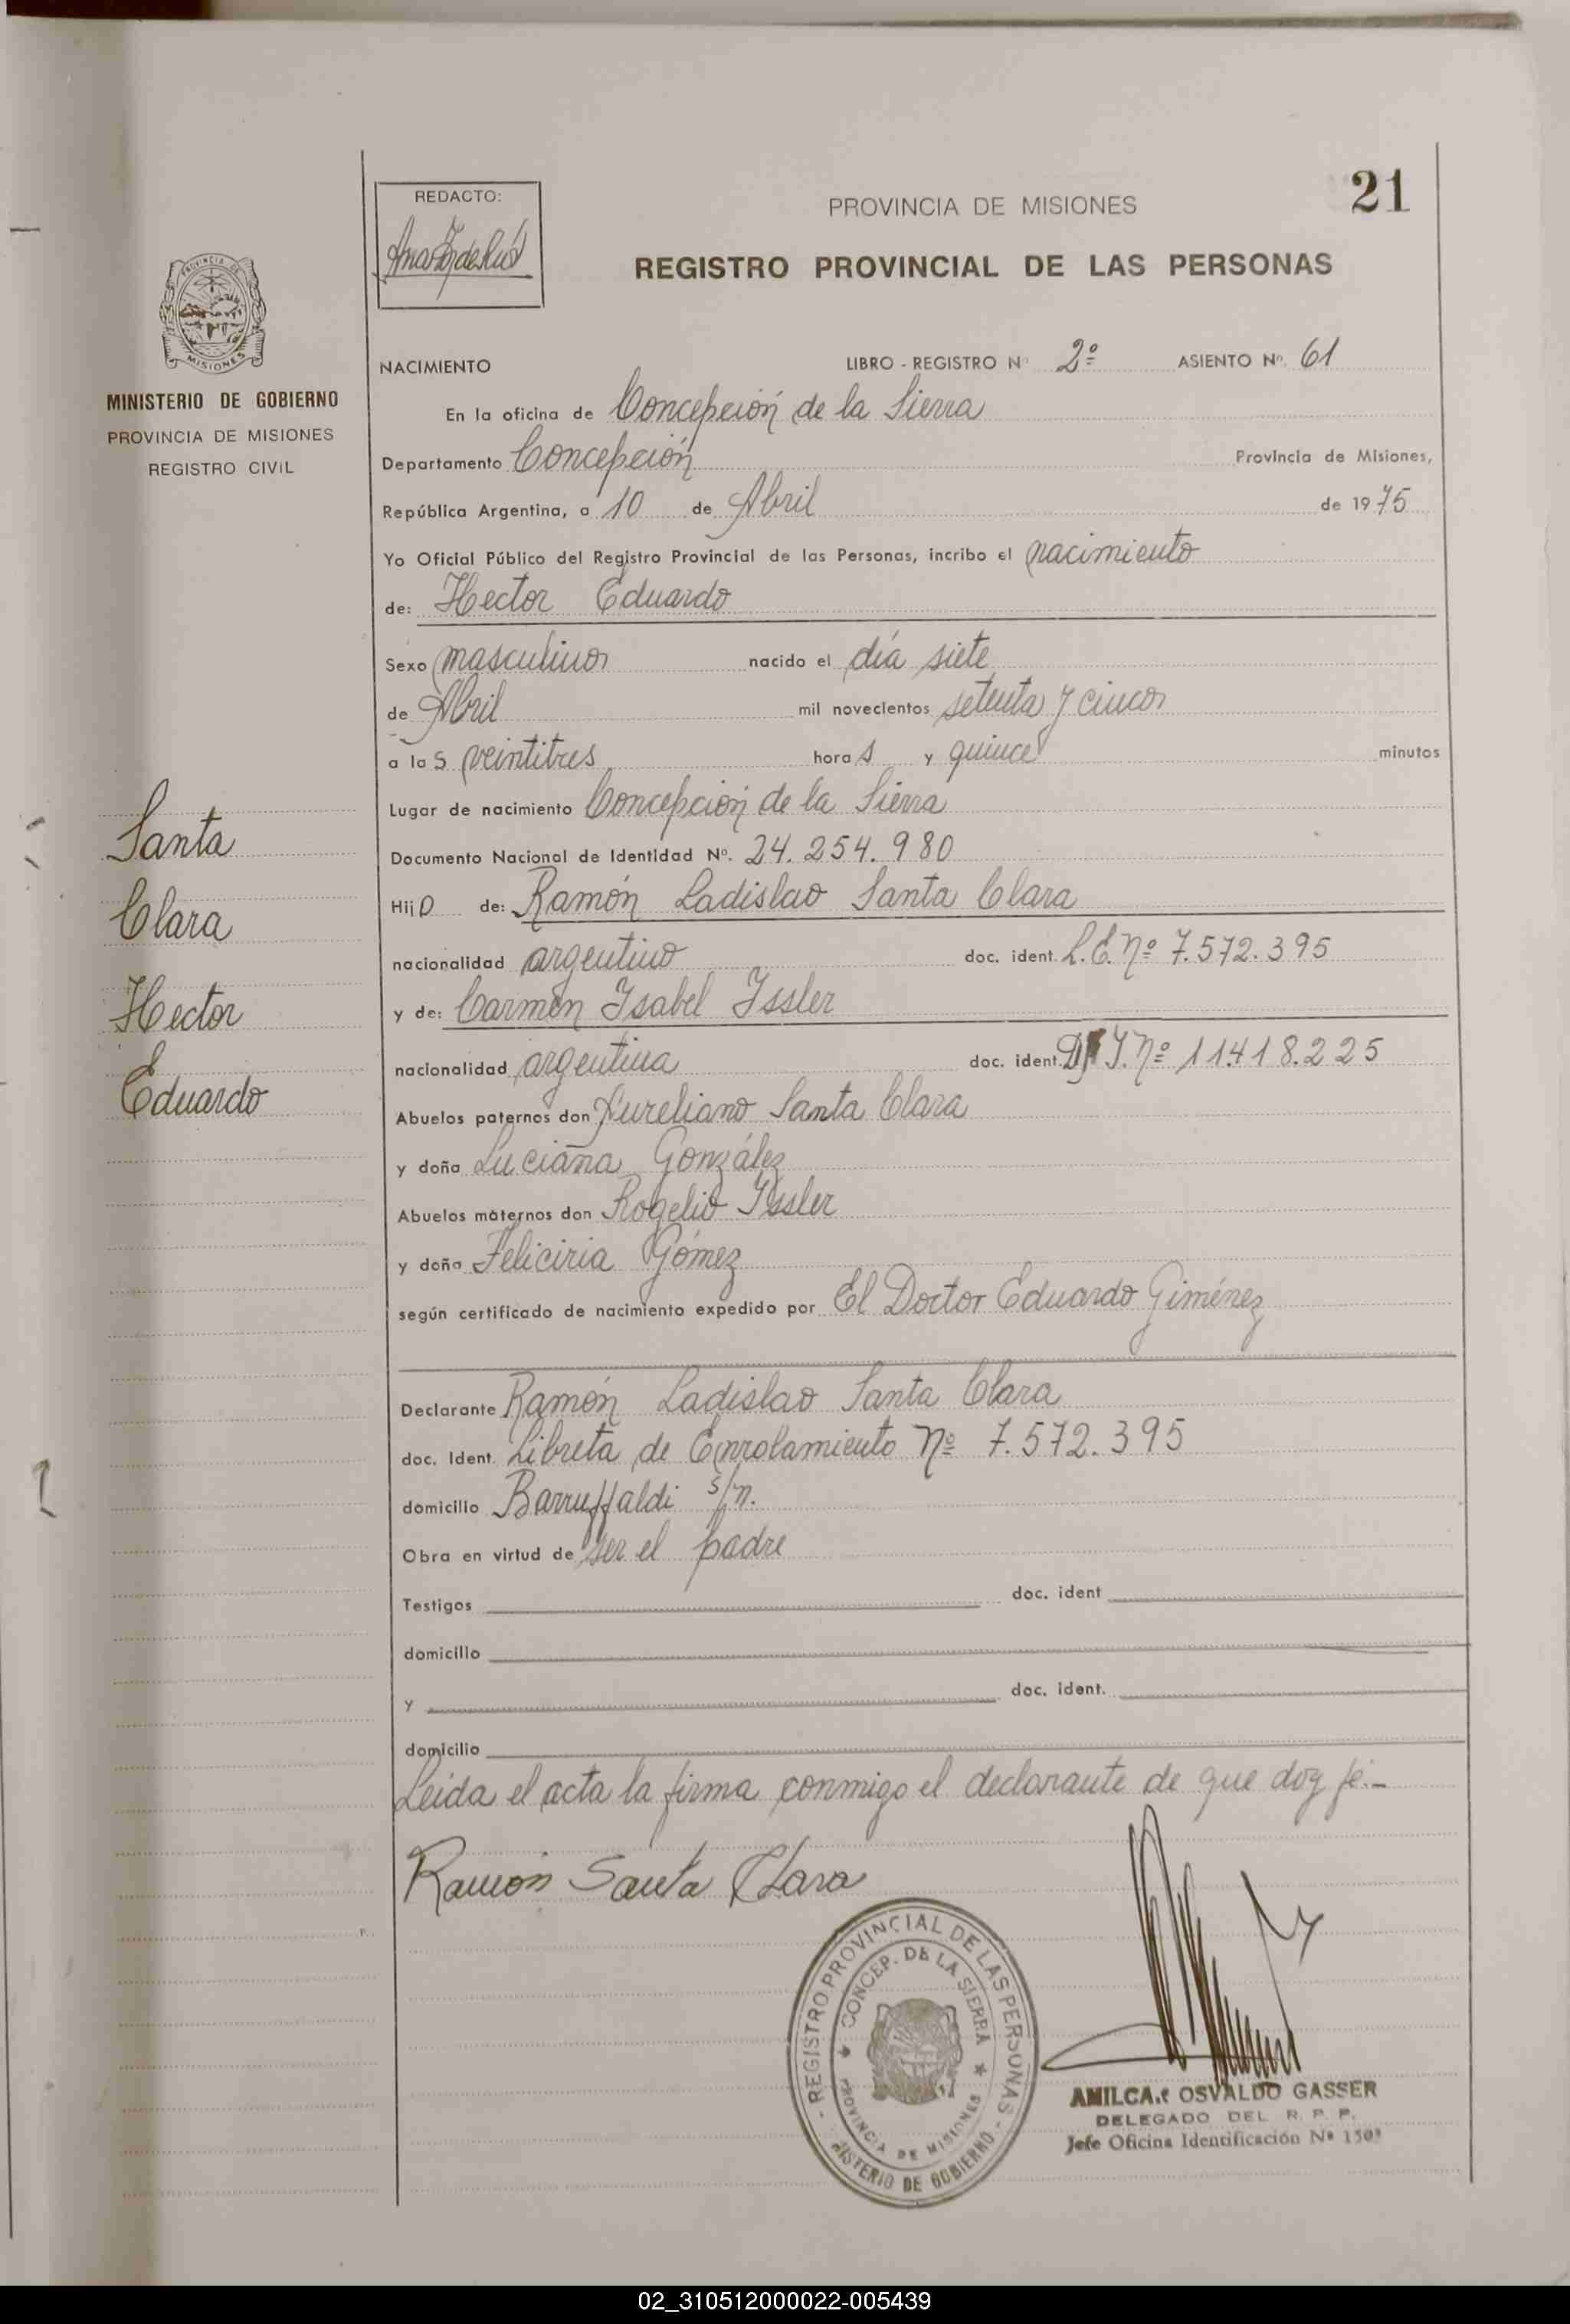 REDACTO:
PROVINCIA DE MISIONES
21
REGISTRO PROVINCIAL DE LAS PERSONAS
PROVINCIA DE
MISIONES
MINISTERIO DE GOBIERNO
PROVINCIA DE MISIONES
REGISTRO CIVIL
NACIMIENTO LIBRO - REGISTRO Nº 2º ASIENTO Nº. 61
En la oficina de Concepción de la Sierra
Departamento Concepción Provincia de Misiones,
República Argentina, a 10 de Abril de 1975
Yo Oficial Público del Registro Provincial de las Personas, incribo el nacimiento
de: Hector Eduardo
Sexo masculino nacido el día siete
de Abril mil novecientos setenta y cinco
a las veintitres horas y quince minutos
Lugar de nacimiento Concepción de la Sierra
Documento Nacional de Identidad Nº. 24.254.980
Hijo de: Ramón Ladislao Santa Clara
nacionalidad argentino doc. ident. L.E. Nº 7.572.395
y de: Carmen Isabel Issler
nacionalidad argentina doc. ident. Nº 11.418.225
Abuelos paternos don Aureliano Santa Clara
y doña Luciana González
Abuelos maternos don Rogelio Issler
y doña Feliciria Gómez
según certificado de nacimiento expedido por El Doctor Eduardo Giménez
Declarante Ramón Ladislao Santa Clara
doc. Ident. Libreta de Enrolamiento Nº 7.572.395
domicilio Barruffaldi s/n.
Obra en virtud de ser el padre
Testigos doc. ident
domicilio
y doc. ident.
domicilio
Leida el acta la firma conmigo el declarante de que doy fe.-
Santa
Clara
Hector
Eduardo
Ramón Santa Clara
- REGISTRO PROVINCIAL DE LAS PERSONAS -
CONCEP. DE LA SIERRA
PROVINCIA DE MISIONES
MINISTERIO DE GOBIERNO
AMILCAR OSVALDO GASSER
DELEGADO DEL R. P. P.
Jefe Oficina Identificación Nº
02_310512000022-005439